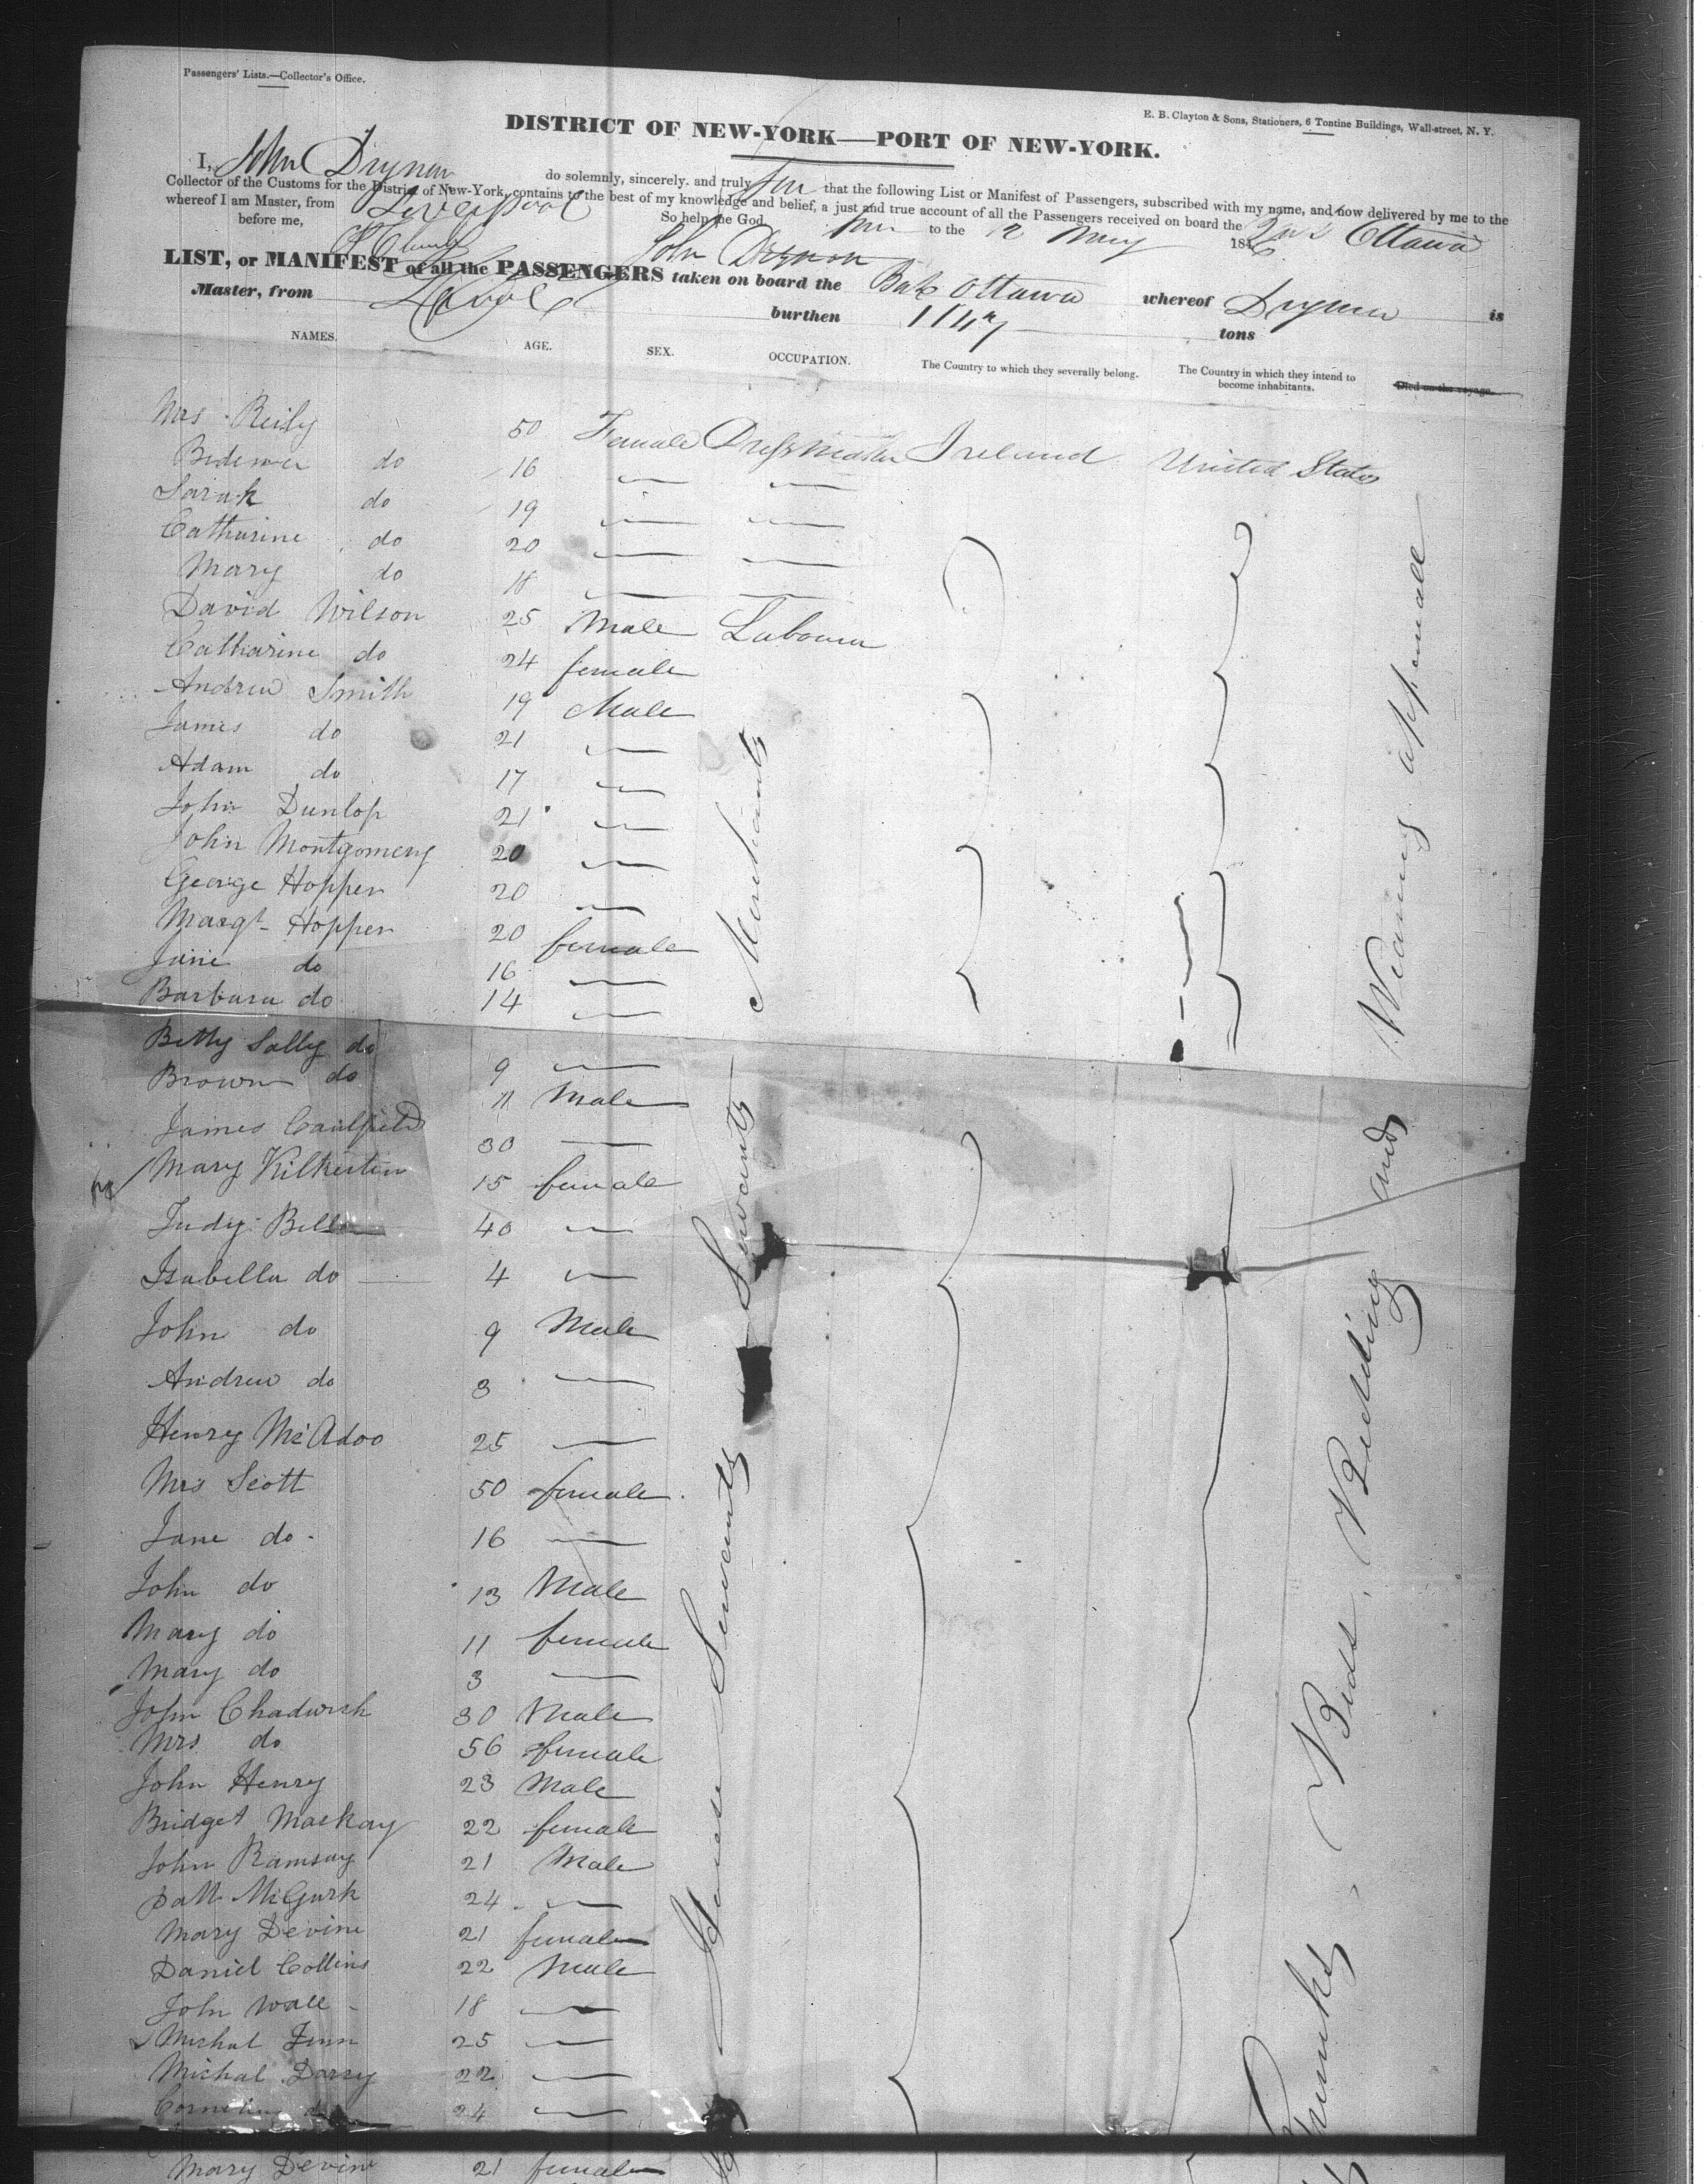 Passengers' Lists.—Collector's Office.
E. B. Clayton & Sons, Stationers, 6 Tontine Buildings, Wall-street, N. Y.
DISTRICT OF NEW-YORK—PORT OF NEW-YORK.
I, John Drynan do solemnly, sincerely, and truly that the following List or Manifest of Passengers, subscribed with my name, and now delivered by me to the
Collector of the Customs for the District of New-York, contains to the best of my knowledge and belief, a just and true account of all the Passengers received on board the Ottawa
whereof I am Master, from Liverpool
So help me God. to the 12 May 184
before me, John Drynan
LIST, or MANIFEST of all the PASSENGERS taken on board the Ottawa whereof Drynan is
Master, from burthen 1147 tons
NAMES. AGE. SEX. OCCUPATION. The Country to which they severally belong. The Country in which they intend to become inhabitants. Died on the voyage.
Mrs Reily 50 Female Dressmaker Ireland United States
do 16
Sarah do 19
Catharine do 20
Mary do 18
David Wilson 25 Male Labourer
Catharine do 24 female
Andrew Smith 19 Male
James do 21
Adam do 17
John Dunlop 21
John Montgomery 20
George Hopper 20
Margt Hopper 20 female
Jane do 16
Barbara do 14
Betty Sally do 9
Brown do 11 Male
James Caulfield 30
Mary 15 female
Judy Bell 40
Isabella do 4
John do 9 Male
Andrew do 3
Henry McAdoo 25
Mrs Scott 50 female
Jane do 16
John do 13 Male
Mary do 11 female
Mary do 3
John Chadwick 30 Male
Mrs do 56 female
John Henry 23 Male
Bridget Mackay 22 female
John Ramsay 21 Male
Patt McGurk 24
Mary Devine 21 female
Daniel Collins 22 Male
John Wall 18
Michal Finn 25
Michal Darcy 22
Cornelius do 24
Mary Devine 21 female
Merchants
House Servants Servants
Trunks, Beds, Bedding and Wearing apparell